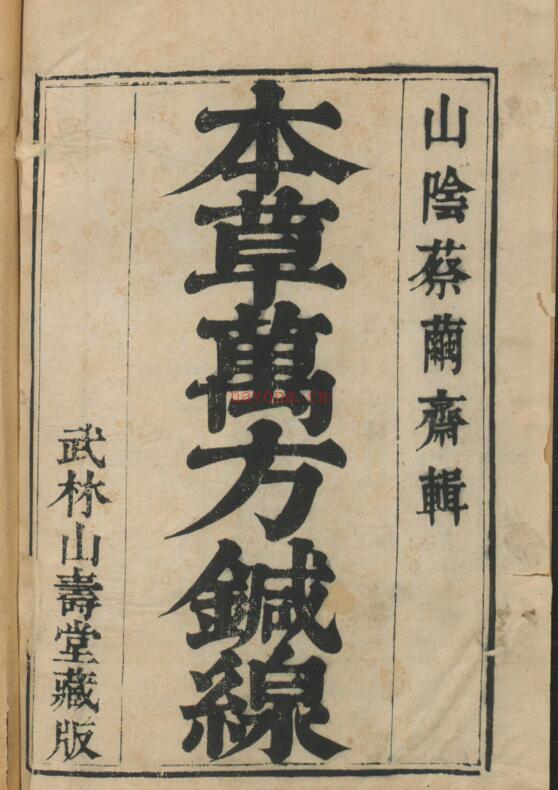 山陰蔡繭齋輯
本草萬方鍼線
武林山壽堂藏版
nayona.cn